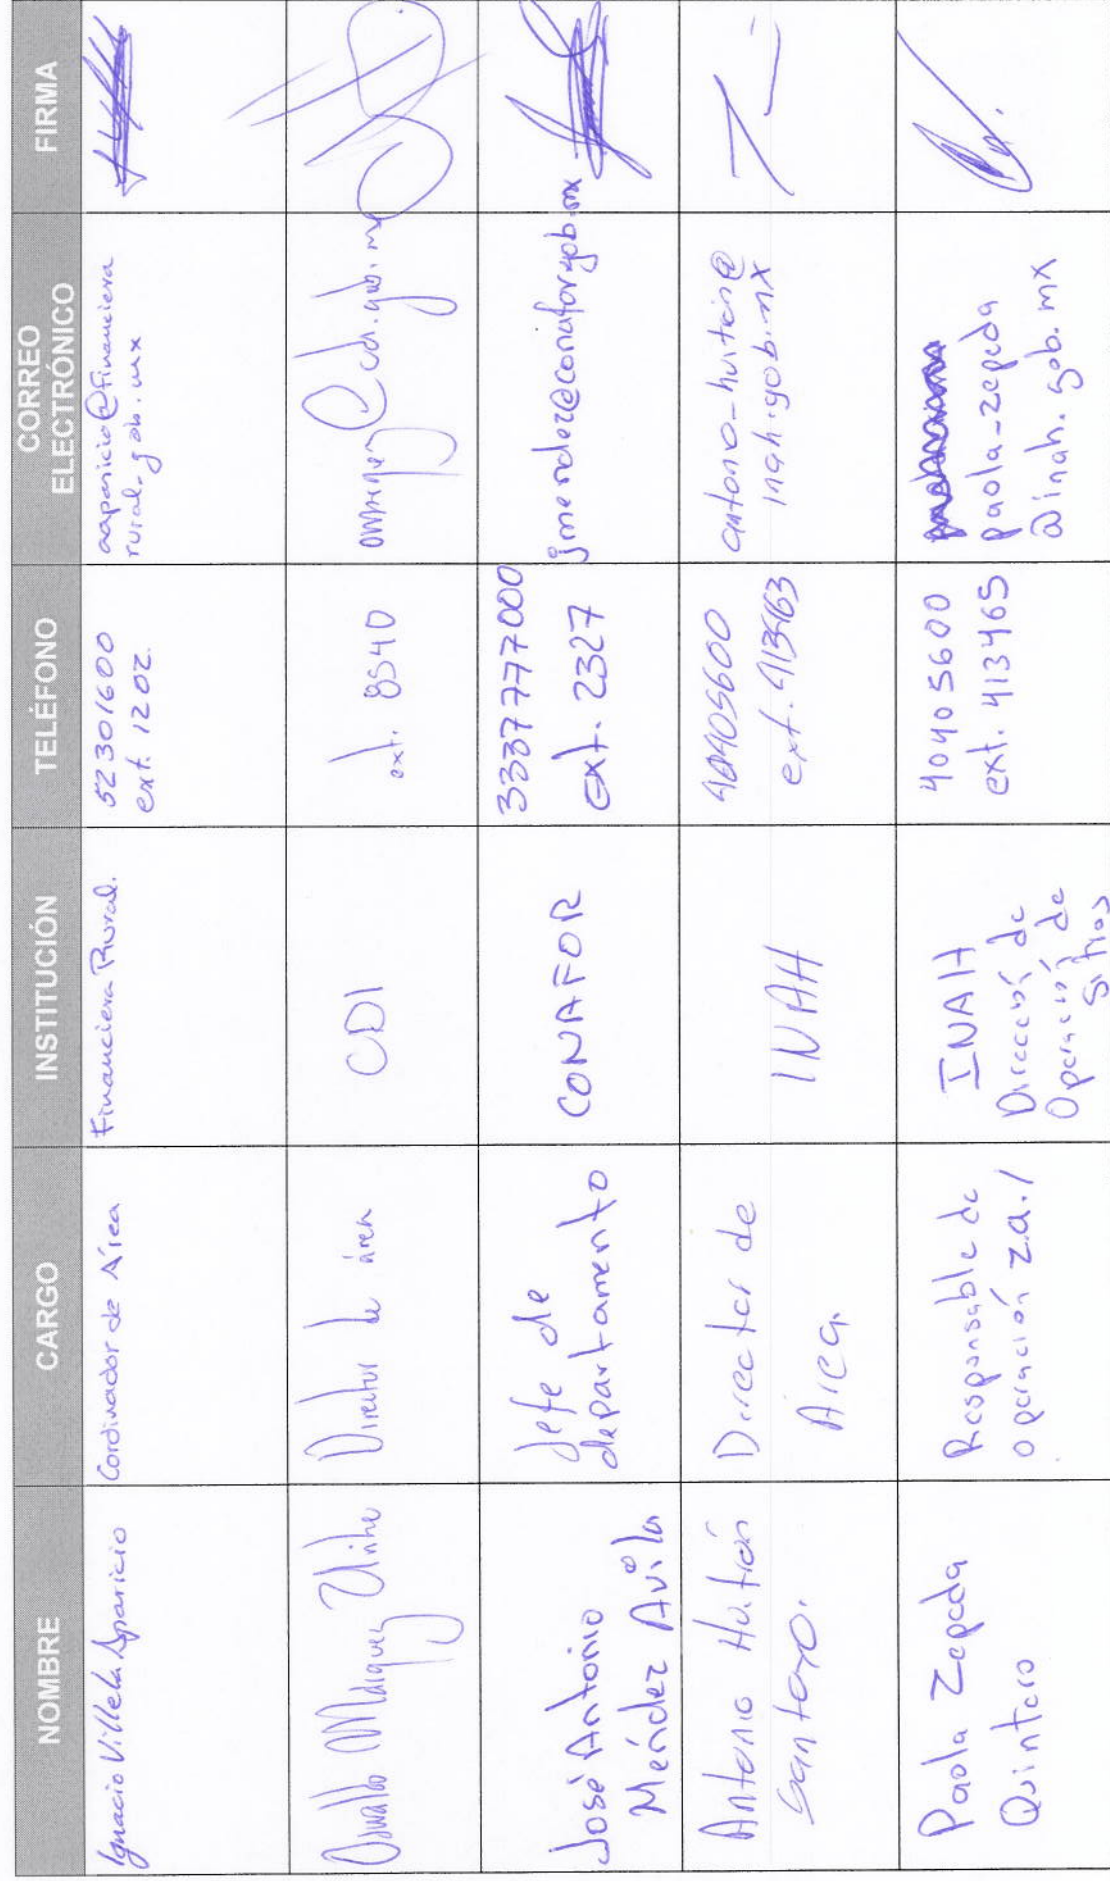 NOMBRE
CARGO
INSTITUCIÓN
TELÉFONO
CORREO
ELECTRÓNICO
FIRMA
Ignacio Villela Aparicio
Cordinador de Área
Financiera Rural.
52301600
ext. 1202.
aaparicio@financiera
rural.gob.mx
Osvaldo Marquez
Director de área
CDI
ext. 8540
@cdi.gob.mx
José Antonio
Méndez Avila
Jefe de
departamento
CONAFOR
3337777000
ext. 2327
jmendez@conafor.gob.mx
Antonio Huitrón
Santoyo.
Director de
Area.
INAH
40405600
antonio-huitron@
inah.gob.mx
Paola Zepeda
Quintero
Responsable de
operación z.a./
INAH
Dirección de
Operación de
Sitios
40405600
ext. 413465
paola-zepeda
@inah.gob.mx